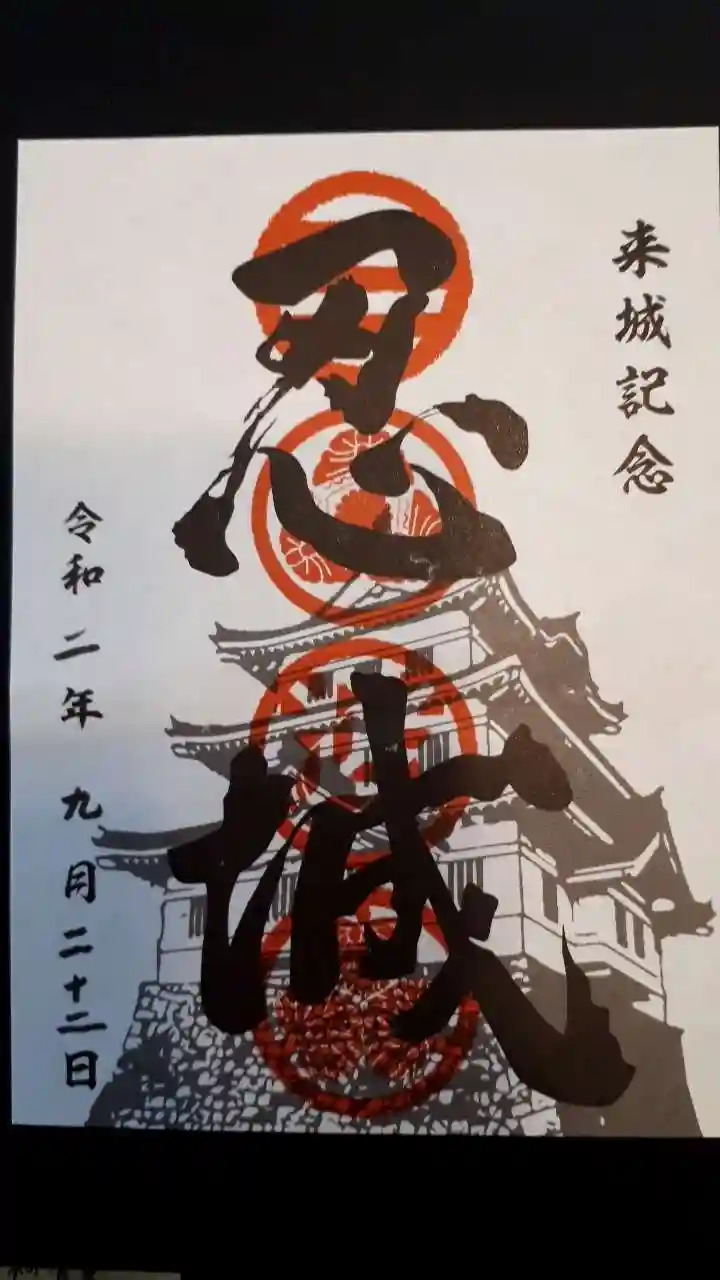 来城記念
忍城
令和二年 九月二十二日